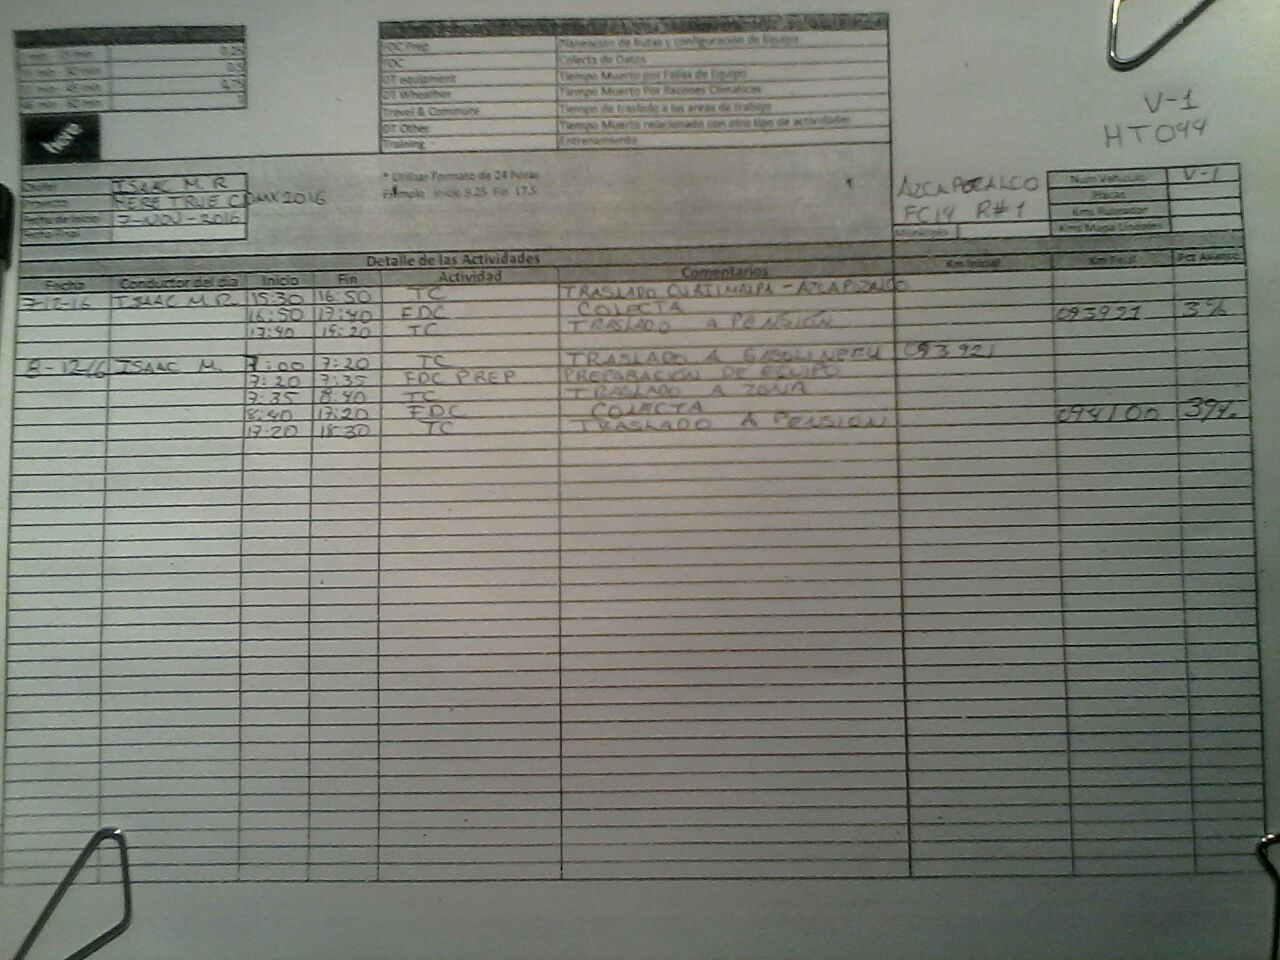 0.25
0.5
0.75
FDC Prep Planeación de Rutas y configuración de Equipo
FDC Colecta de Datos
DT equipment Tiempo Muerto por Fallas de Equipo
DT Wheather Tiempo Muerto Por Razones Climáticas
Travel & Commute Tiempo de traslado a las areas de trabajo
DT Other Tiempo Muerto relacionado con otro tipo de actividades
Training - Entrenamiento
here
V-1
HT044
* Utilizar Formato de 24 horas
Ejemplo : Inicio 9.25 Fin 17.5
ISAAC M. R
HERE TRUE CDMX 2016
Fecha de Inicio 7-NOV-2016
Fecha Final
AZCAPOZALCO
FC14 R#1
Municipio
Num Vehiculo V-1
Placas
Detalle de las Actividades
Fecha Conductor del dia Inicio Fin Actividad Comentarios Km Inicial Km Final Pct Avance
7-12-16 ISAAC M.R. 15:30 16:50 TC TRASLADO CUAJIMALPA - AZCAPOZALCO
16:50 17:40 FDC COLECTA 093921 3%
17:40 19:20 TC TRASLADO A PENSIÓN
8-12-16 ISAAC M. 7:00 7:20 TC TRASLADO A GASOLINERA 093921
7:20 7:35 FDC PREP PREPARACION DE EQUIPO
7:35 8:40 TC TRASLADO A ZONA
8:40 17:20 FDC COLECTA 094100 39%
17:20 18:30 TC TRASLADO A PENSION